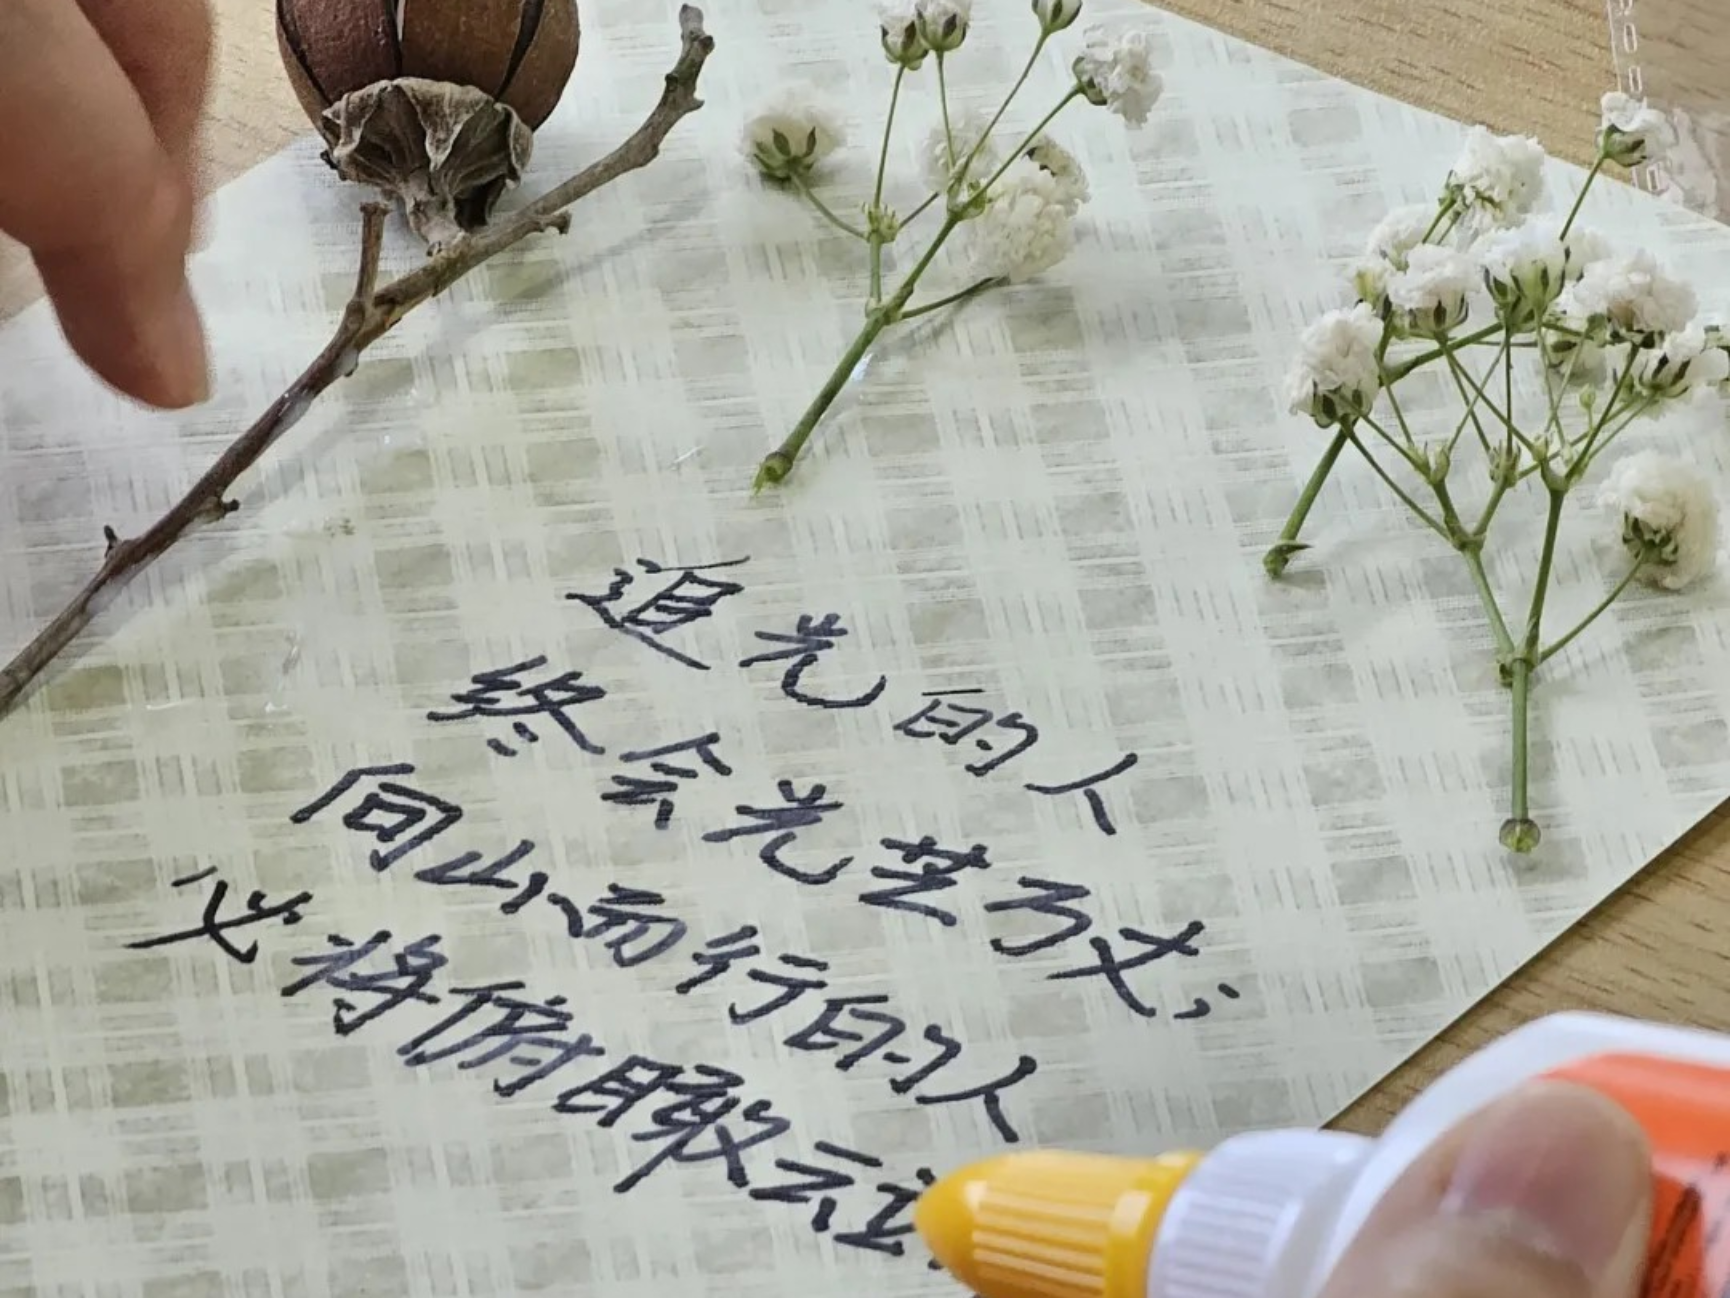 追光的人
终会光芒万丈；
向山而行的人
必将俯瞰云